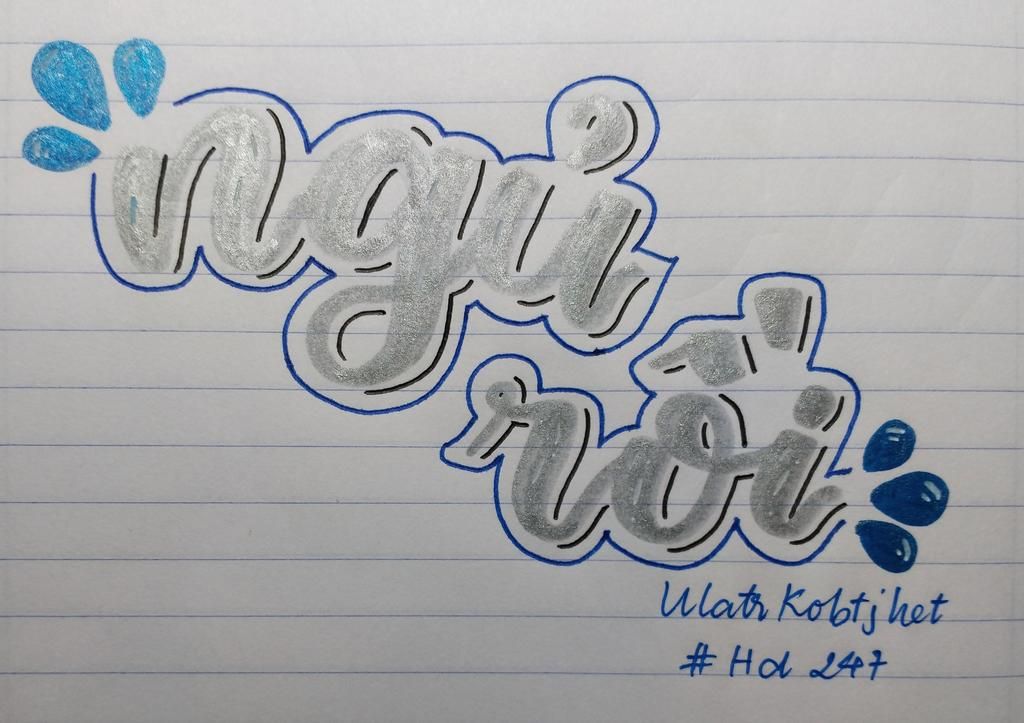 ngủ
rồi
Ulatr Kobtjhet
# Hd 247